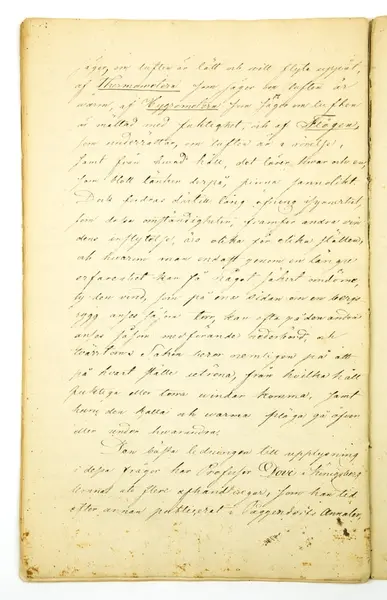 säger, om luften är lätt och vill flyta uppåt,
af Thermometern som säger om luften är
warm, af Hygrometern som säger om luften
är mättad med fuktighet, och af Flögeln,
som underrättar, om luften är i rörelse,
samt från hvad håll, det låter hwar och en,
som blott tänker derpå, finna sannolikt.
Dock fordras dertill lång öfning i synnerhet,
som dessa omständigheter, framför andra
dens inflytelse, äro olika för olika ställen,
och hwarom man endast genom en längre
erfarenhet kan få något säkert omdöme,
ty den vind, som på ena sidan om en bergs-
rygg anses såsom torr, kan ofta på den andra
anses såsom medförande nederbörd, och
twärtom. Saken beror nemligen på att
på hvart ställe utröna, från hvilka håll
fuktiga eller torra windar komma, samt
huru den kalla och warma flöga gå öfver
eller under hwarandra.
Den bästa ledningen till upplysning
i dessa frågor har Professor Dove i Königsberg
lemnat och flere afhandlingar, som han tid
efter annan publicerat i Poggendorfs Annaler,